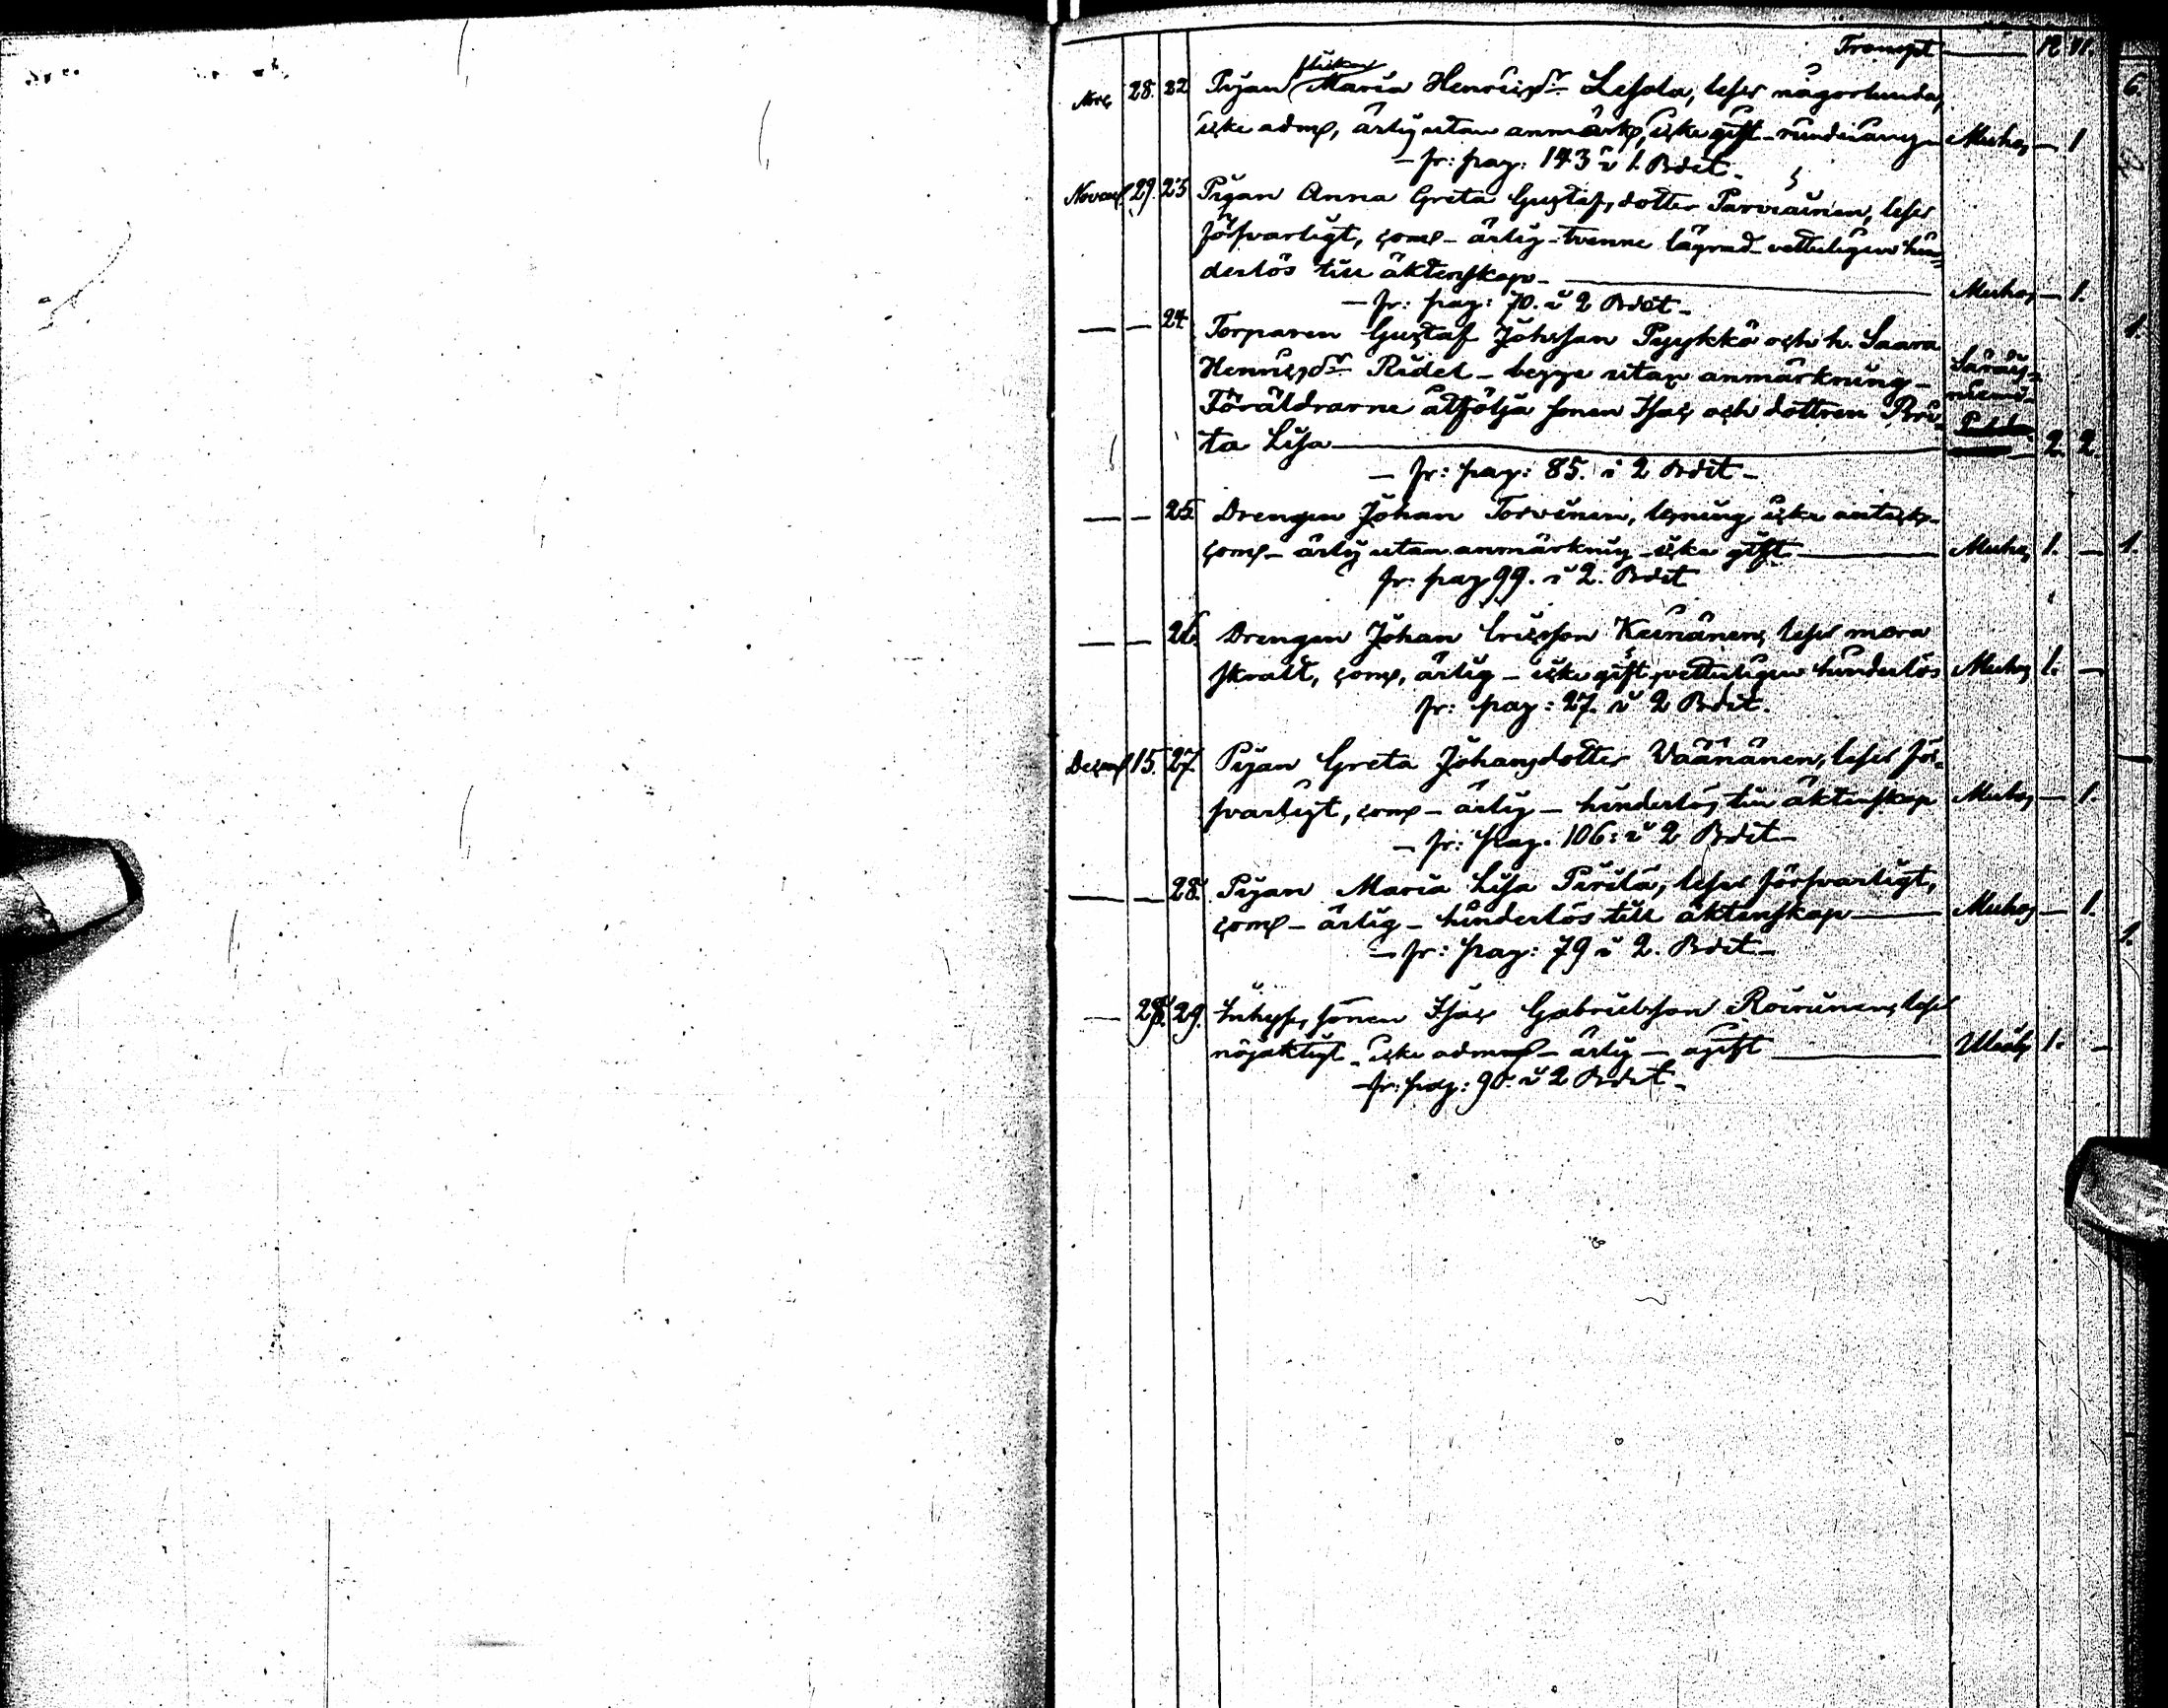 Transpt — 12. 11.
flickan
Nov. 28. 22 Pigan Maria Henricsdr Lesola, läser någorlunda,
icke adm, ärlig utan anmärkn, icke gift Muhos — 1
— fr: pag: 143 i 1. Bdet.
Novemb. 29. 23 Pigan Anna Greta Gustafsdotter Parviainen, läser
försvarligt, com — ärlig — tvenne lägrad — vetterligen hin-
derlös till äktenskap — Muhos — 1.
— fr: pag: 70. i 2 Bdet —
— — 24. Torparen Gustaf Johansson Pyykkö och h. Saara
Henricsdr Ridel — begge utan anmärkning — Säräis-
Föräldrarne åtfölja sonen Isac och dottren Bri- niemi
ta Lisa — 2. 2.
— fr: pag: 85. i 2 Bdet —
— — 25. Drengen Johan Torvinen, läsning icke anteckn
com — ärlig utan anmärkning — icke gift — Muhos 1. —
fr: pag 99. i 2. Bdet
— — 26. Drengen Johan Ericsson Keinänen, läser
svalt, com, ärlig — icke gift, vetterligen hinderlös Muhos 1. —
fr: pag: 27. i 2 Bdet.
Decemb 15. 27. Pigan Greta Johansdotter Väänänen, läser för-
svarligt, com — ärlig — hinderlös till äktenskap Muhos — 1.
— fr: pag. 106: i 2 Bdet —
— — 28. Pigan Maria Lisa Pirilä, läser försvarligt,
com — ärlig — hinderlös till äktenskap — Muhos — 1.
— fr: pag: 79 i 2. Bdet —
— 28. 29. Inhyses sonen Isac Gabrielsson Roininen, läser
nöjaktigt — icke adm — ärlig — ogift — Uleåb 1. —
— fr: pag: 90. i 2 Bdet —
6.
1.
1.
1.